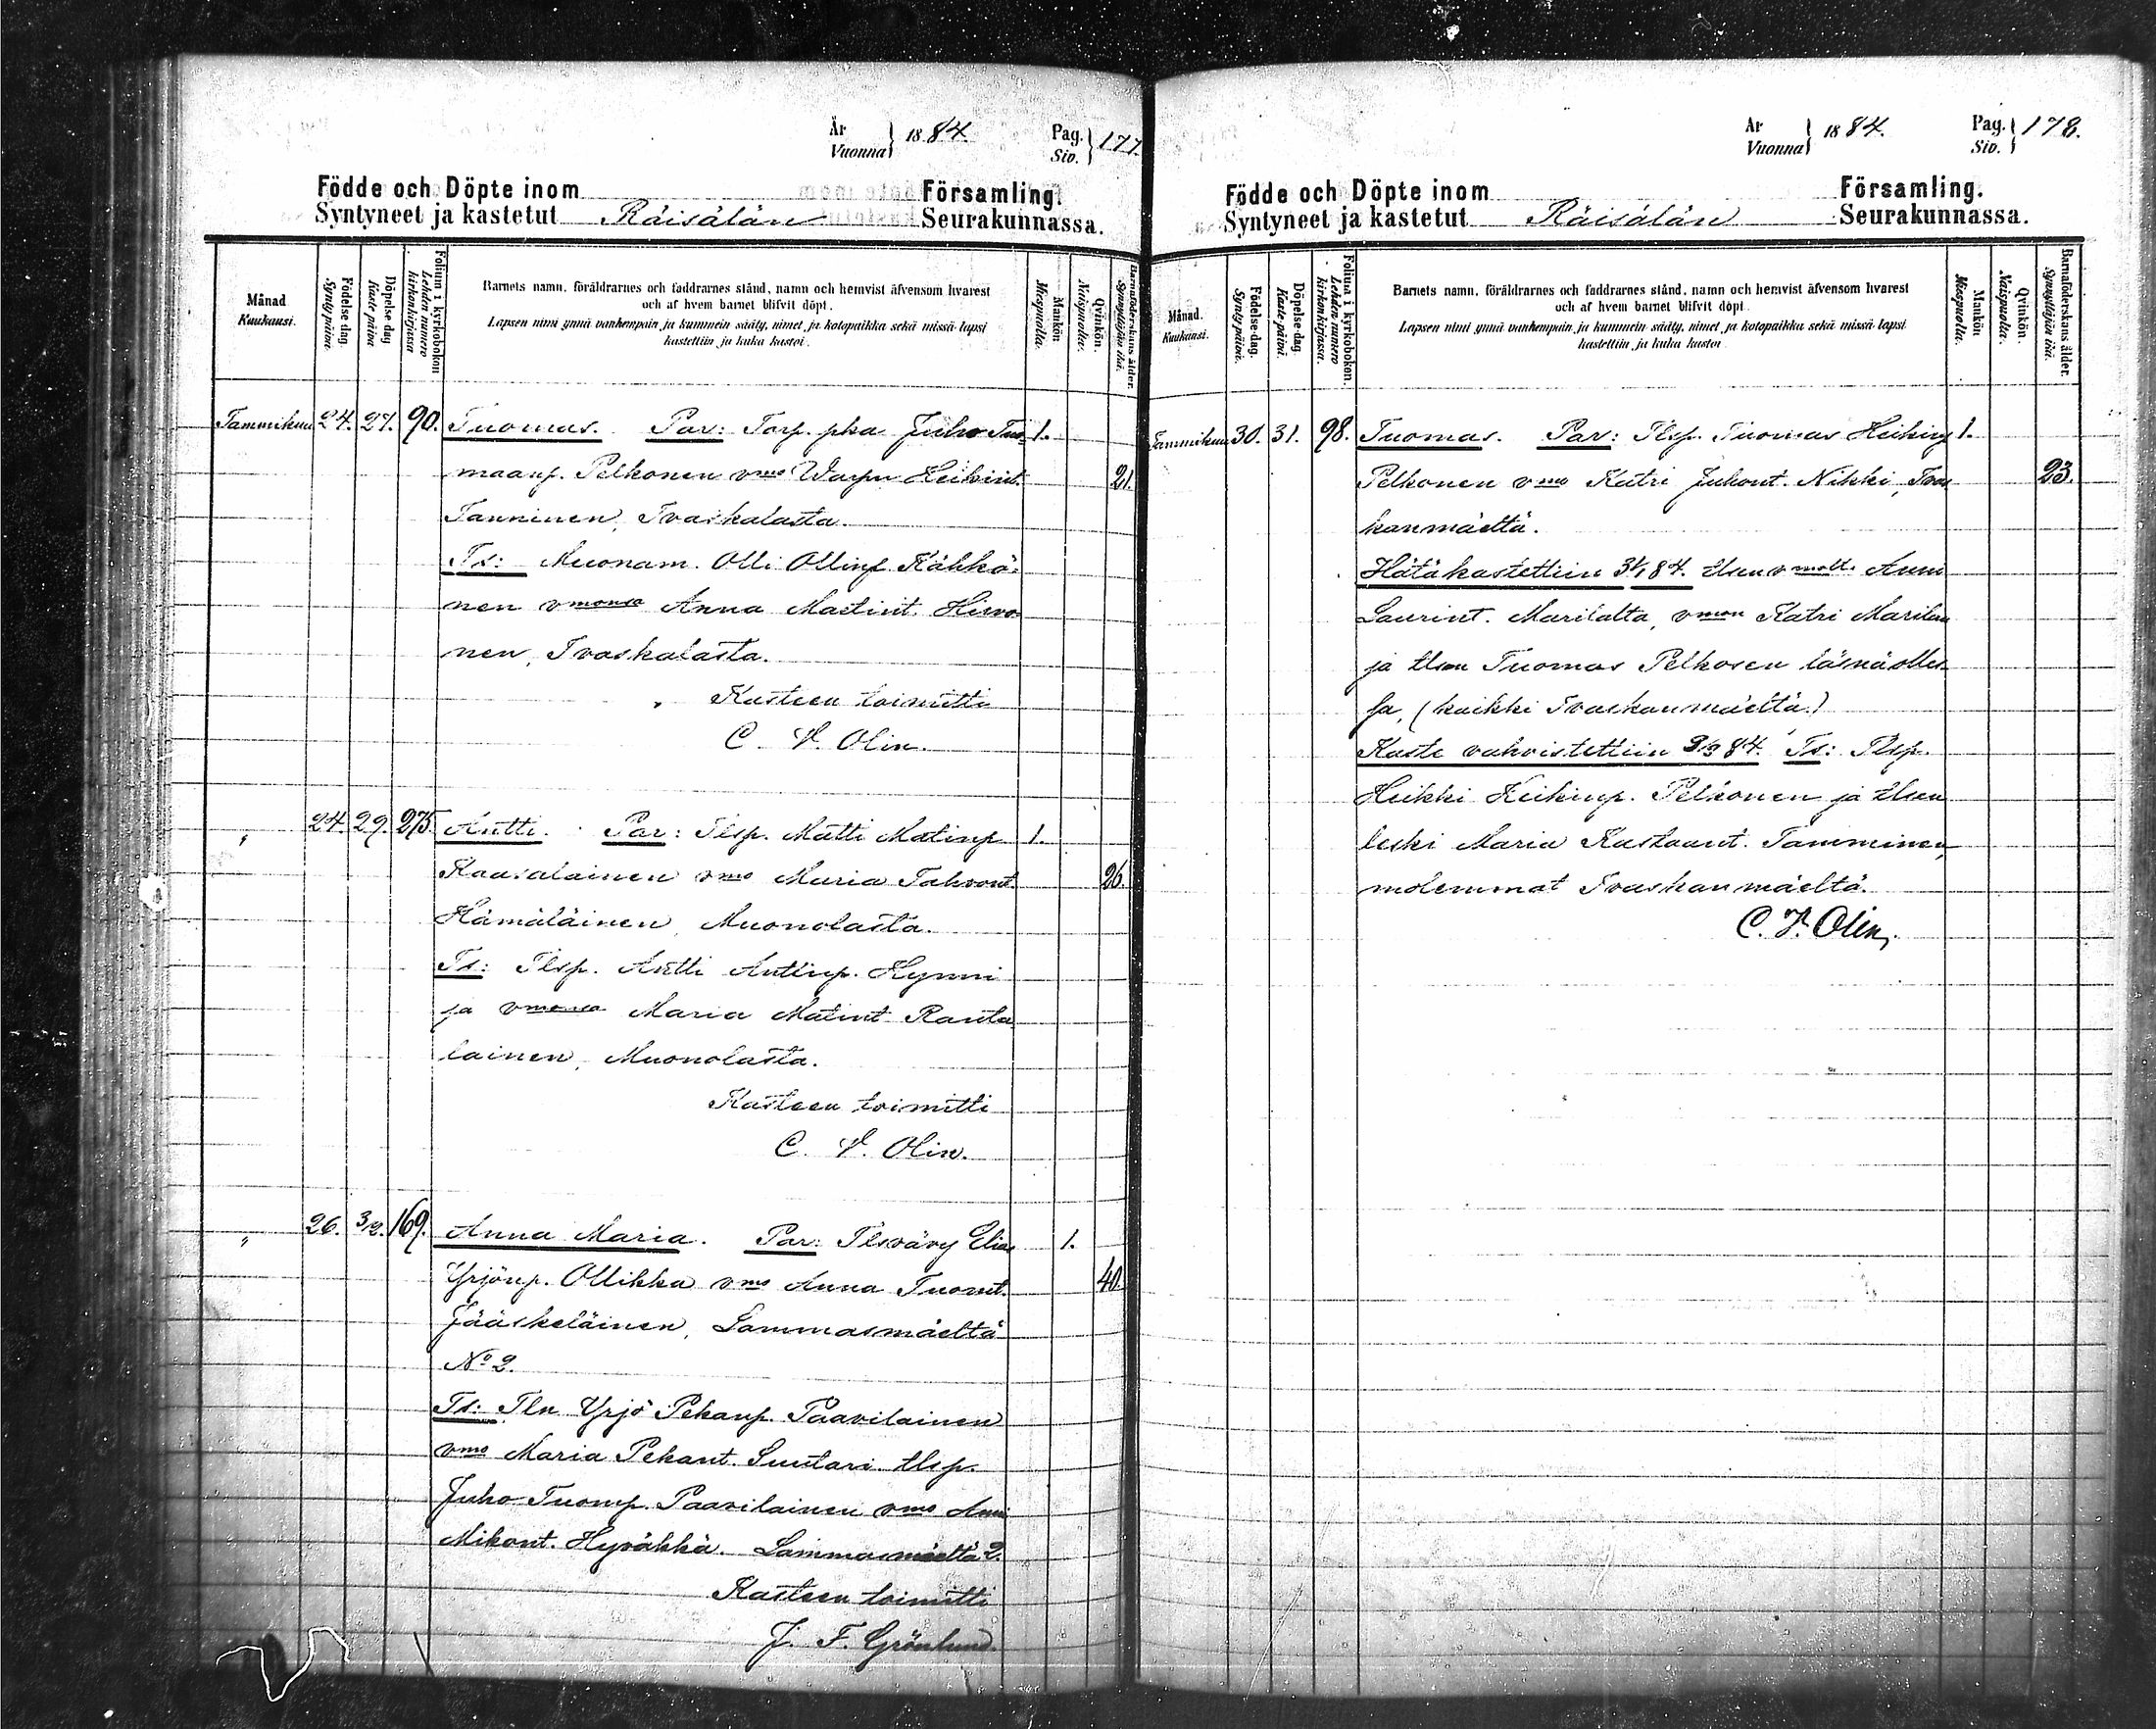 År Vuonna } 1884. Pag. Siv. } 177.
Födde och Döpte inom Församling.
Syntyneet ja kastetut Räisälän Seurakunnassa.
Månad Kuukausi.
Födelse dag. Synty päivä.
Döpelse dag Kaste päivä
Folium i kyrkobokon Lehden numero kirkonkirjassa
Barnets namn, föräldrarnes och faddrarnes stånd, namn och hemvist äfvensom hvarest
och af hvem barnet blifvit döpt.
Lapsen nimi ynnä vanhempain ja kummein sääty, nimet ja kotopaikka sekä missä lapsi
kastettiin ja kuka kastoi.
Mankön Miespuolta.
Qvinkön. Naispuolta.
Barnaföderskans ålder. Synnyttäjän ikä.
Tammikuu 24. 27. 90. Tuomas. Par: Torp. pka Juho Tuo 1.
maanp. Pelkonen vmo Warpu Heikint. 21.
Tanninen, Ivaskalasta.
Ts: Muonam. Olli Ollinp. Kähkö-
nen vmonsa Anna Martint. Hirvo
nen, Ivaskalasta.
Kasteen toimitti
C. F. Olin.
" 24. 29. 275. Antti. Par: Tlsp. Matti Matinp. 1.
Kaasalainen vmo Maria Tahvont. 26.
Hämäläinen, Muonolasta.
Ts: Tlsp. Antti Antinp. Hynni
ja vmonsa Maria Matint. Ranta
lainen, Muonolasta.
Kasteen toimitti
C. F. Olin.
" 26. 3/2. 169. Anna Maria. Par: Tlsvävy Elias 1.
Yrjönp. Ollikka vmo Anna Tuomt. 40.
Jääskeläinen, Lammasmäeltä
No 2.
Ts: Tln Yrjö Pekanp. Paavilainen
vmo Maria Pekant. Suutari. tlsp.
Juho Tuomp. Paavilainen vmo Anni
Mikont. Hyväkkä. Lammasmäeltä 2.
Kasteen toimitti
J. F. Grönlund.
År Vuonna } 1884. Pag. Siv. } 178.
Födde och Döpte inom Församling.
Syntyneet ja kastetut Räisälän Seurakunnassa.
Månad. Kuukausi.
Födelse dag. Synty päivä.
Döpelse dag. Kaste päivä.
Folium i kyrkobokon. Lehden numero kirkonkirjassa.
Barnets namn, föräldrarnes och faddrarnes stånd, namn och hemvist äfvensom hvarest
och af hvem barnet blifvit döpt.
Lapsen nimi ynnä vanhempain ja kummein sääty, nimet ja kotopaikka sekä missä lapsi
kastettiin ja kuka kastoi
Mankön Miespuolta.
Qvinkön. Naispuolta.
Barnaföderskans ålder. Synnyttäjän ikä.
Tammikuu 30. 31. 98. Tuomas. Par: Tlsp. Tuomas Heikinp 1.
Pelkonen vmo Katri Juhont. Nikki, Ivas 23.
kanmäeltä.
Hätäkastettiin 31/1 84. tlsen vmolt. Anni
Laurint. Marilalta, vmon Katri Marilan
ja tlsen Tuomas Pelkosen läsnäolles
sa, (kaikki Ivaskanmäeltä.)
Kaste vahvistettiin 3/3 84. Ts: Tlsp.
Heikki Heikinp. Pelkonen ja tlsen
leski Maria Kustaant. Tamminen,
molemmat Ivaskanmäeltä.
C. F. Olin.